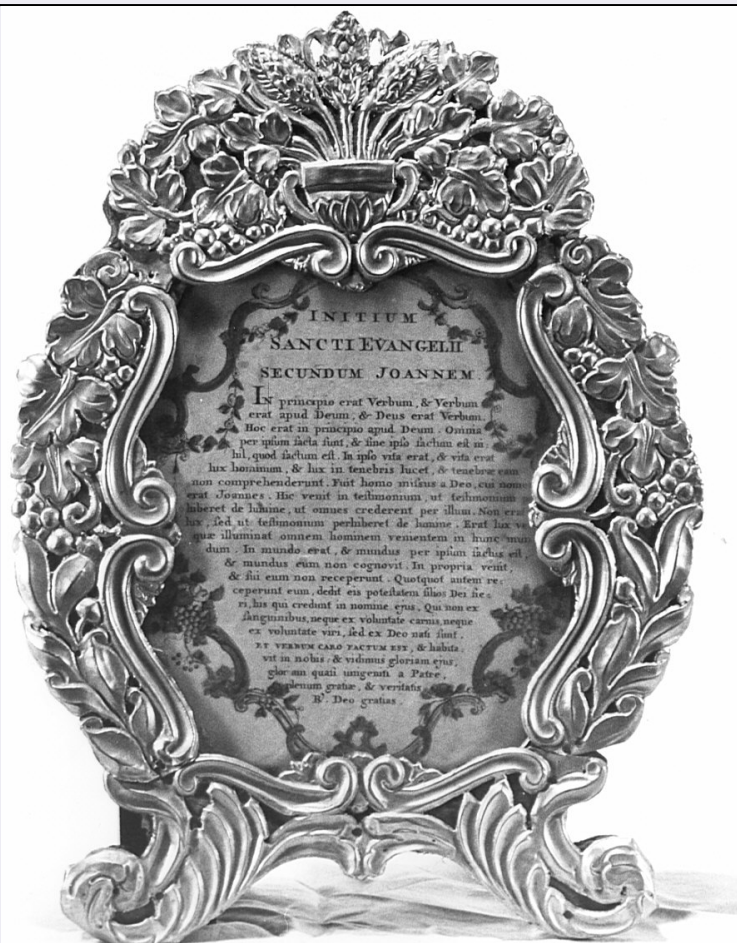 INITIUM
SANCTI EVANGELII
SECUNDUM JOANNEM.
IN principio erat Verbum, & Verbum
erat apud Deum, & Deus erat Verbum.
Hoc erat in principio apud Deum. Omnia
per ipsum facta sunt, & sine ipso factum est ni
hil, quod factum est. In ipso vita erat, & vita erat
lux hominum, & lux in tenebris lucet, & tenebræ eam
non comprehenderunt. Fuit homo missus a Deo, cui nomen
erat Joannes. Hic venit in testimonium, ut testimonium
hiberet de lumine, ut omnes crederent per illum. Non erat
lux, sed ut testimonium perhiberet de lumine. Erat lux ve
quæ illuminat omnem hominem venientem in hunc mun
dum. In mundo erat, & mundus per ipsum factus est,
& mundus eum non cognovit. In propria venit,
& sui eum non receperunt. Quotquot autem re:
ceperunt eum, dedit eis potestatem filios Dei fie:
ri, his qui credunt in nomine ejus, Qui non ex
sanguinibus, neque ex voluntate carnis, neque
ex voluntate viri, sed ex Deo nati sunt.
ET VERBUM CARO FACTUM EST, & habita:
vit in nobis: & vidimus gloriam ejus,
gloriam quasi unigeniti a Patre,
plenum gratiæ, & veritatis
R. Deo gratias.